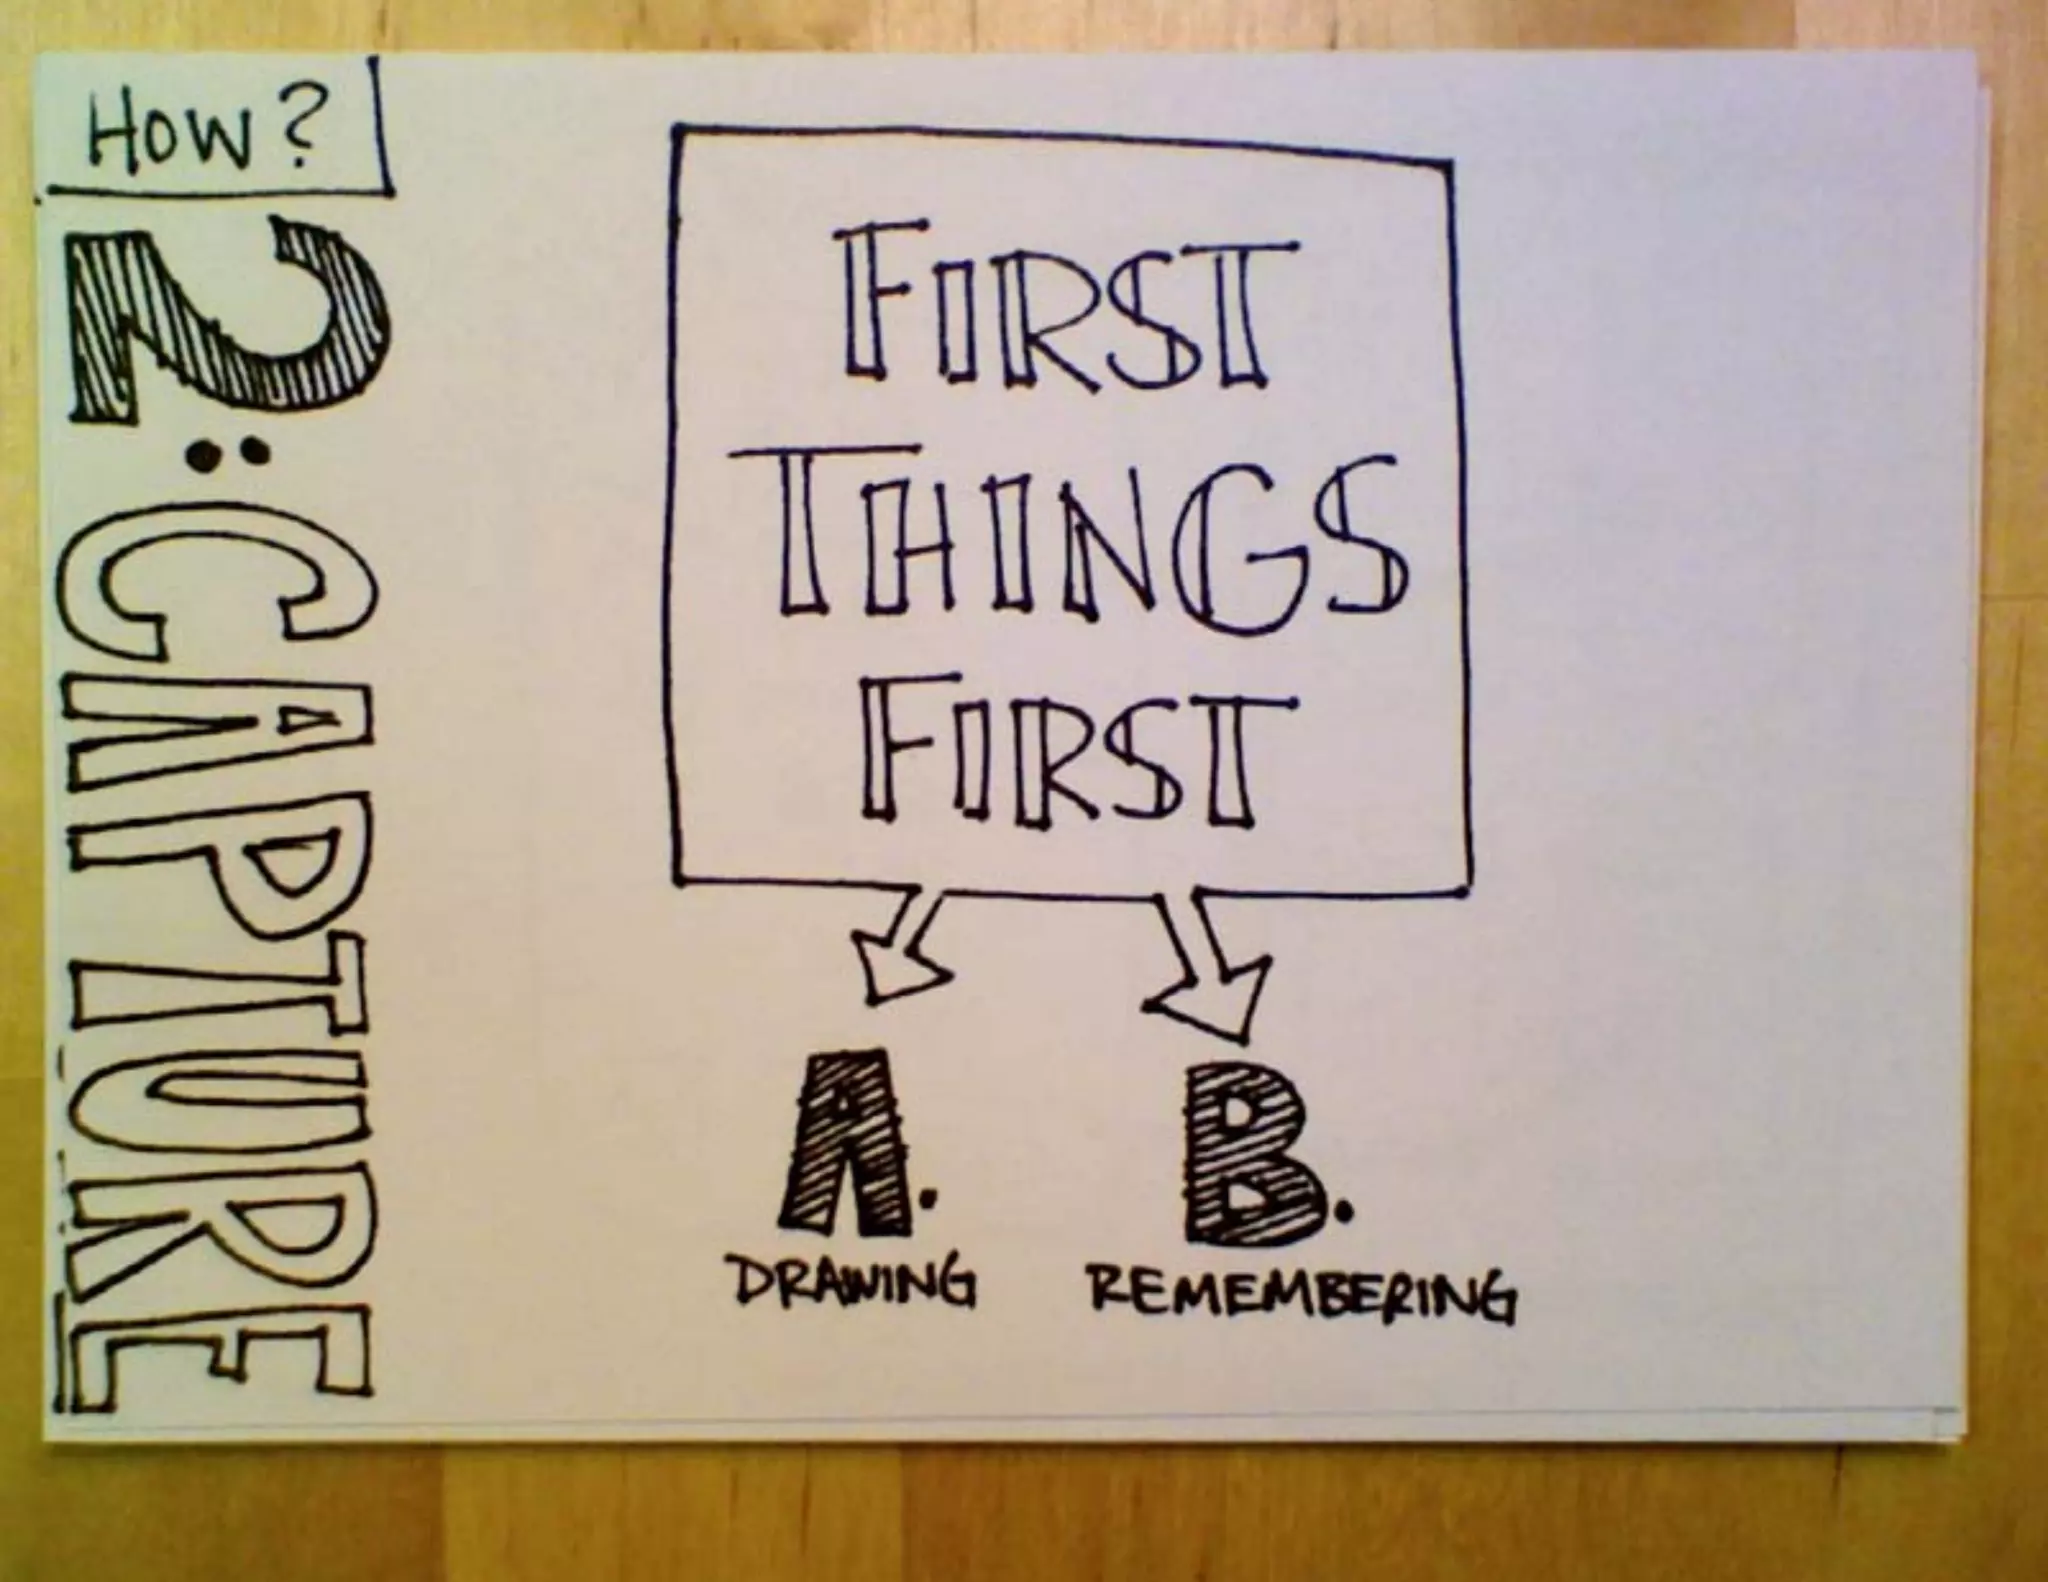 How?
2: CAPTURE
FIRST
THINGS
FIRST
A. B.
DRAWING REMEMBERING